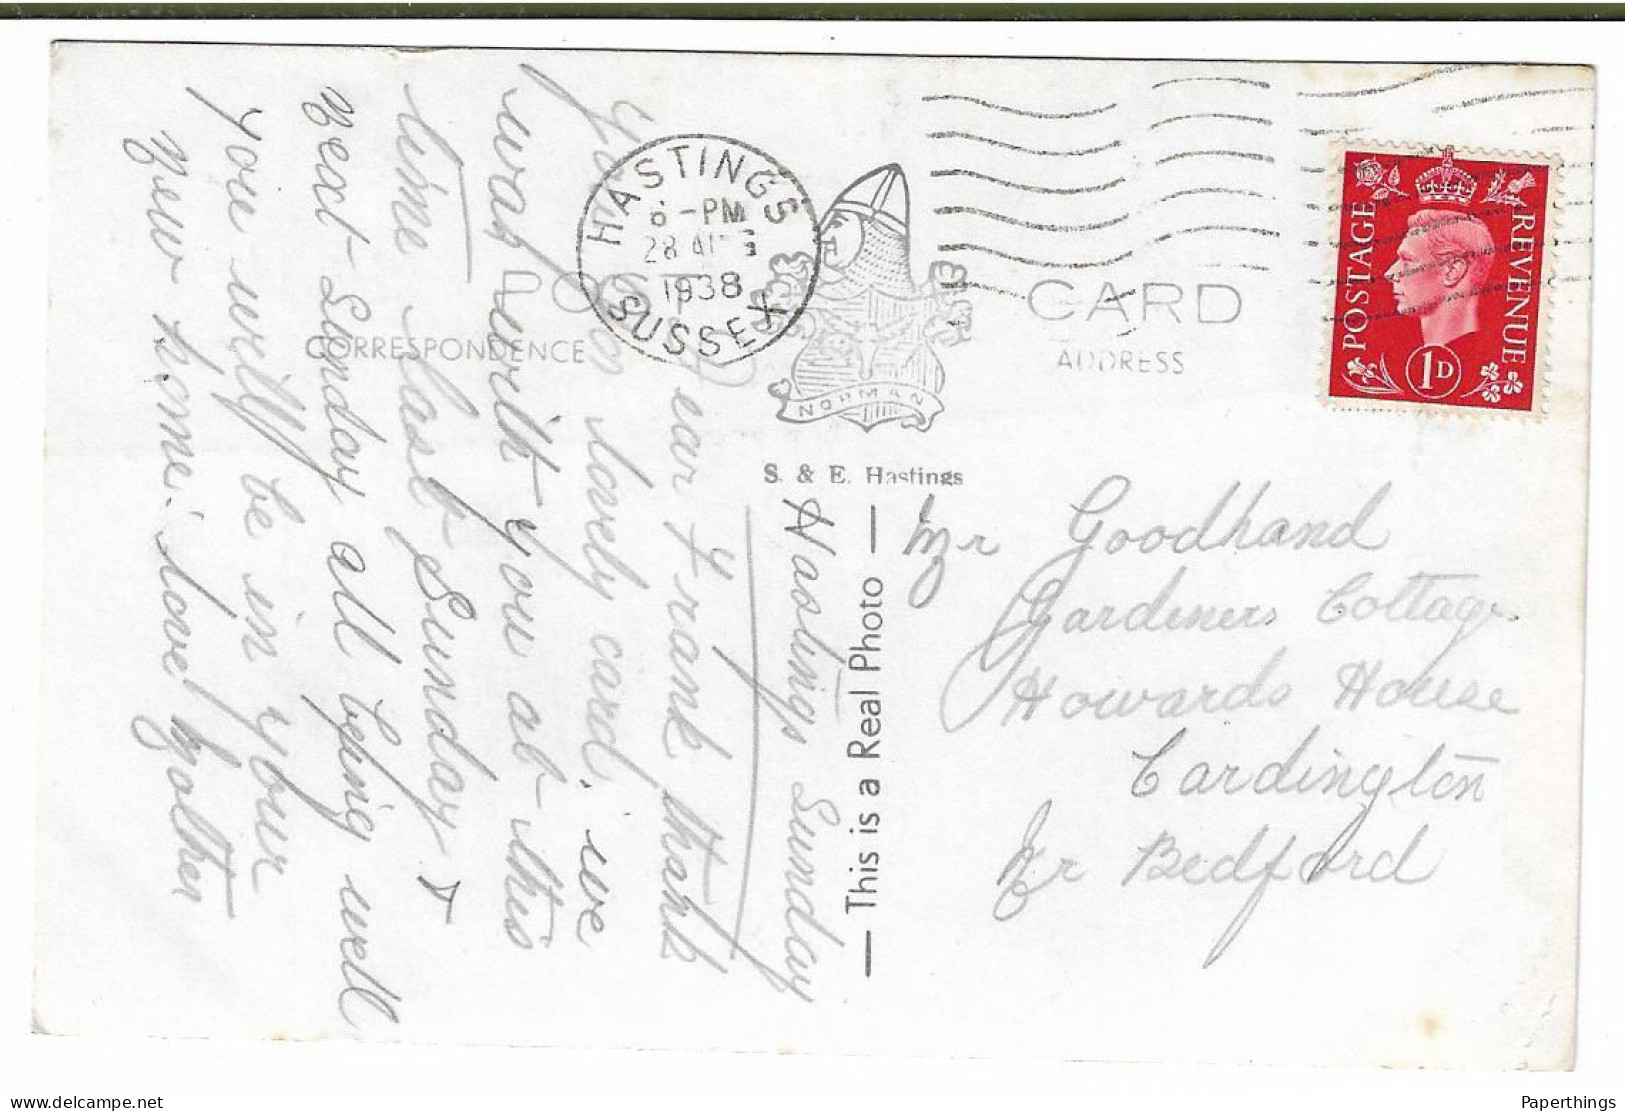 HASTINGS
6-PM
28 AUG
1938
SUSSEX
POST CARD
CORRESPONDENCE
ADDRESS
NORMAN
S. & E. Hastings
POSTAGE
REVENUE
1D
This is a Real Photo
Hastings Sunday
Dear Frank thank
you lovely card. we
was with you at this
time last Sunday &
Next Sunday all being well
you will be in your
New home. love Mother
Mr Goodhand
Gardeners Cottage
Howards House
Cardington
Nr Bedford
www.delcampe.net
Paperthings